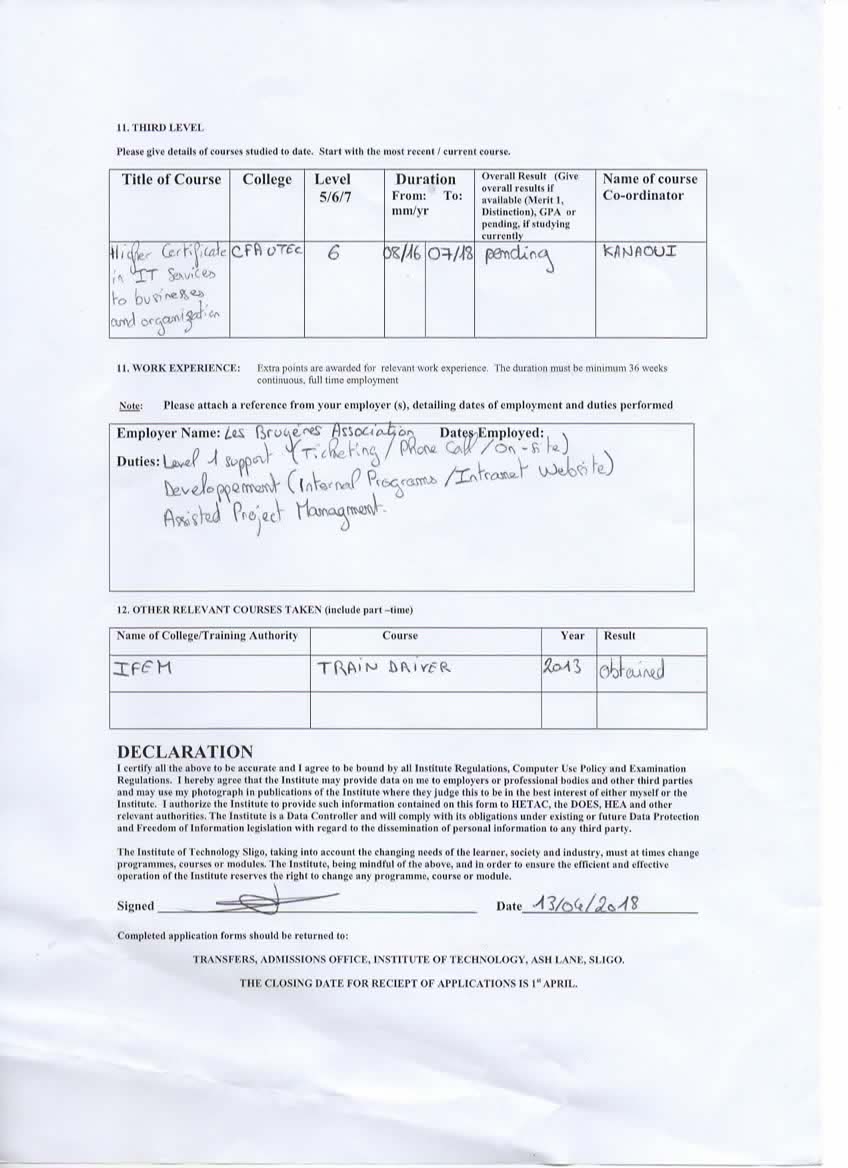 11. THIRD LEVEL
Please give details of courses studied to date. Start with the most recent / current course.
Title of Course College Level 5/6/7 Duration From: To: mm/yr Overall Result (Give overall results if available (Merit 1, Distinction), GPA or pending, if studying currently Name of course Co-ordinator
Higher Certificate CFA UTEC 6 08/16 07/18 pending KANAOUI
in IT Services
to businesses
and organization
11. WORK EXPERIENCE: Extra points are awarded for relevant work experience. The duration must be minimum 36 weeks
continuous, full time employment
Note: Please attach a reference from your employer (s), detailing dates of employment and duties performed
Employer Name: Les Bruyères Association Dates Employed:
Duties: Level 1 support (Ticketing / Phone Call / On-site)
Developpement (Internal Programs / Intranet Website)
Assisted Project Managment.
12. OTHER RELEVANT COURSES TAKEN (include part –time)
Name of College/Training Authority Course Year Result
IFEM TRAIN DRIVER 2013 obtained
DECLARATION
I certify all the above to be accurate and I agree to be bound by all Institute Regulations, Computer Use Policy and Examination
Regulations. I hereby agree that the Institute may provide data on me to employers or professional bodies and other third parties
and may use my photograph in publications of the Institute where they judge this to be in the best interest of either myself or the
Institute. I authorize the Institute to provide such information contained on this form to HETAC, the DOES, HEA and other
relevant authorities. The Institute is a Data Controller and will comply with its obligations under existing or future Data Protection
and Freedom of Information legislation with regard to the dissemination of personal information to any third party.
The Institute of Technology Sligo, taking into account the changing needs of the learner, society and industry, must at times change
programmes, courses or modules. The Institute, being mindful of the above, and in order to ensure the efficient and effective
operation of the Institute reserves the right to change any programme, course or module.
Signed Date 13/04/2018
Completed application forms should be returned to:
TRANSFERS, ADMISSIONS OFFICE, INSTITUTE OF TECHNOLOGY, ASH LANE, SLIGO.
THE CLOSING DATE FOR RECIEPT OF APPLICATIONS IS 1st APRIL.